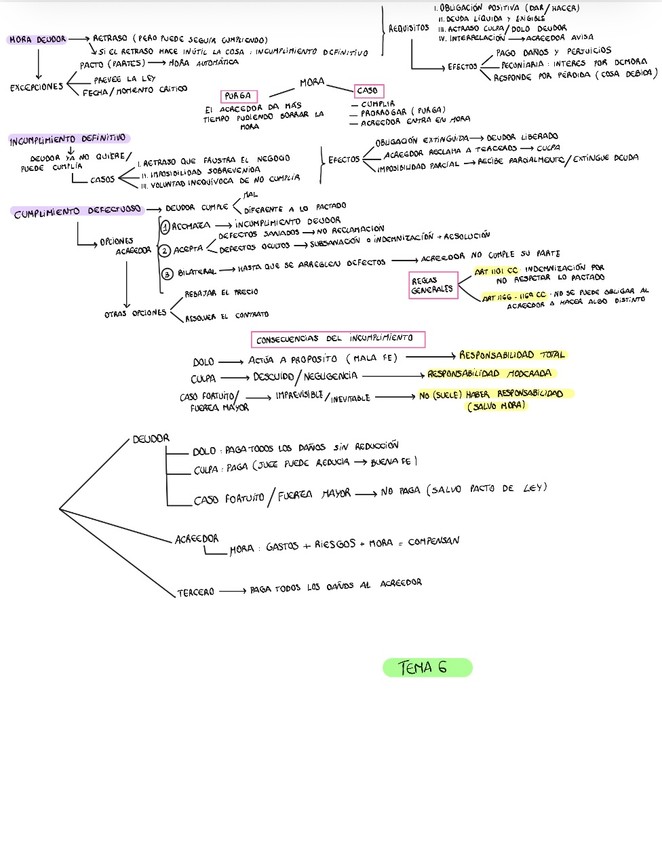 MORA DEUDOR → RETRASO (PERO PUEDE SEGUIR CUMPLIENDO)
SI EL RETRASO HACE INÚTIL LA COSA : INCUMPLIMIENTO DEFINITIVO
EXCEPCIONES
PACTO (PARTES) → MORA AUTOMÁTICA
PREVEE LA LEY
FECHA/MOMENTO CRÍTICO
REQUISITOS
I. OBLIGACIÓN POSITIVA (DAR/HACER)
II. DEUDA LÍQUIDA Y EXIGIBLE
III. RETRASO CULPA/DOLO DEUDOR
IV. INTERPELACIÓN → ACREEDOR AVISA
EFECTOS
PAGO DAÑOS Y PERJUICIOS
PECUNIARIA : INTERES POR DEMORA
RESPONDE POR PÉRDIDA (COSA DEBIDA)
MORA
PURGA
EL ACREEDOR DA MÁS
TIEMPO PUDIENDO BORRAR LA
MORA
CASO
— CUMPLIR
— PRORROGAR (PURGA)
— ACREEDOR ENTRA EN MORA
INCUMPLIMIENTO DEFINITIVO
DEUDOR YA NO QUIERE/
PUEDE CUMPLIR
CASOS
I. RETRASO QUE FRUSTRA EL NEGOCIO
II. IMPOSIBILIDAD SOBREVENIDA
III. VOLUNTAD INEQUÍVOCA DE NO CUMPLIR
EFECTOS
OBLIGACIÓN EXTINGUIDA → DEUDOR LIBERADO
ACREEDOR RECLAMA A TERCEROS → CULPA
IMPOSIBILIDAD PARCIAL → RECIBE PARCIALMENTE/EXTINGUE DEUDA
CUMPLIMIENTO DEFECTUOSO → DEUDOR CUMPLE
MAL
DIFERENTE A LO PACTADO
OPCIONES
ACREEDOR
1 RECHAZA → INCUMPLIMIENTO DEUDOR
2 ACEPTA
DEFECTOS SANADOS → NO RECLAMACIÓN
DEFECTOS OCULTOS → SUBSANACIÓN O INDEMNIZACIÓN + RESOLUCIÓN
3 BILATERAL → HASTA QUE SE ARREGLEN DEFECTOS → ACREEDOR NO CUMPLE SU PARTE
OTRAS OPCIONES
REBAJAR EL PRECIO
RESOLVER EL CONTRATO
REGLAS
GENERALES
ART 1101 CC · INDEMNIZACIÓN POR
NO RESPETAR LO PACTADO
ART 1166 - 1169 CC · NO SE PUEDE OBLIGAR AL
ACREEDOR A HACER ALGO DISTINTO
CONSECUENCIAS DEL INCUMPLIMIENTO
DOLO → ACTÚA A PROPOSITO (MALA FE) → RESPONSABILIDAD TOTAL
CULPA → DESCUIDO/NEGLIGENCIA → RESPONSABILIDAD MODERADA
CASO FORTUITO/
FUERZA MAYOR → IMPREVISIBLE/INEVITABLE → NO (SUELE) HABER RESPONSABILIDAD
(SALVO MORA)
DEUDOR
DOLO : PAGA TODOS LOS DAÑOS SIN REDUCCIÓN
CULPA : PAGA (JUEZ PUEDE REDUCIR → BUENA FE)
CASO FORTUITO/FUERZA MAYOR → NO PAGA (SALVO PACTO DE LEY)
ACREEDOR
MORA : GASTOS + RIESGOS + MORA = COMPENSAN
TERCERO → PAGA TODOS LOS DAÑOS AL ACREEDOR
TEMA 6